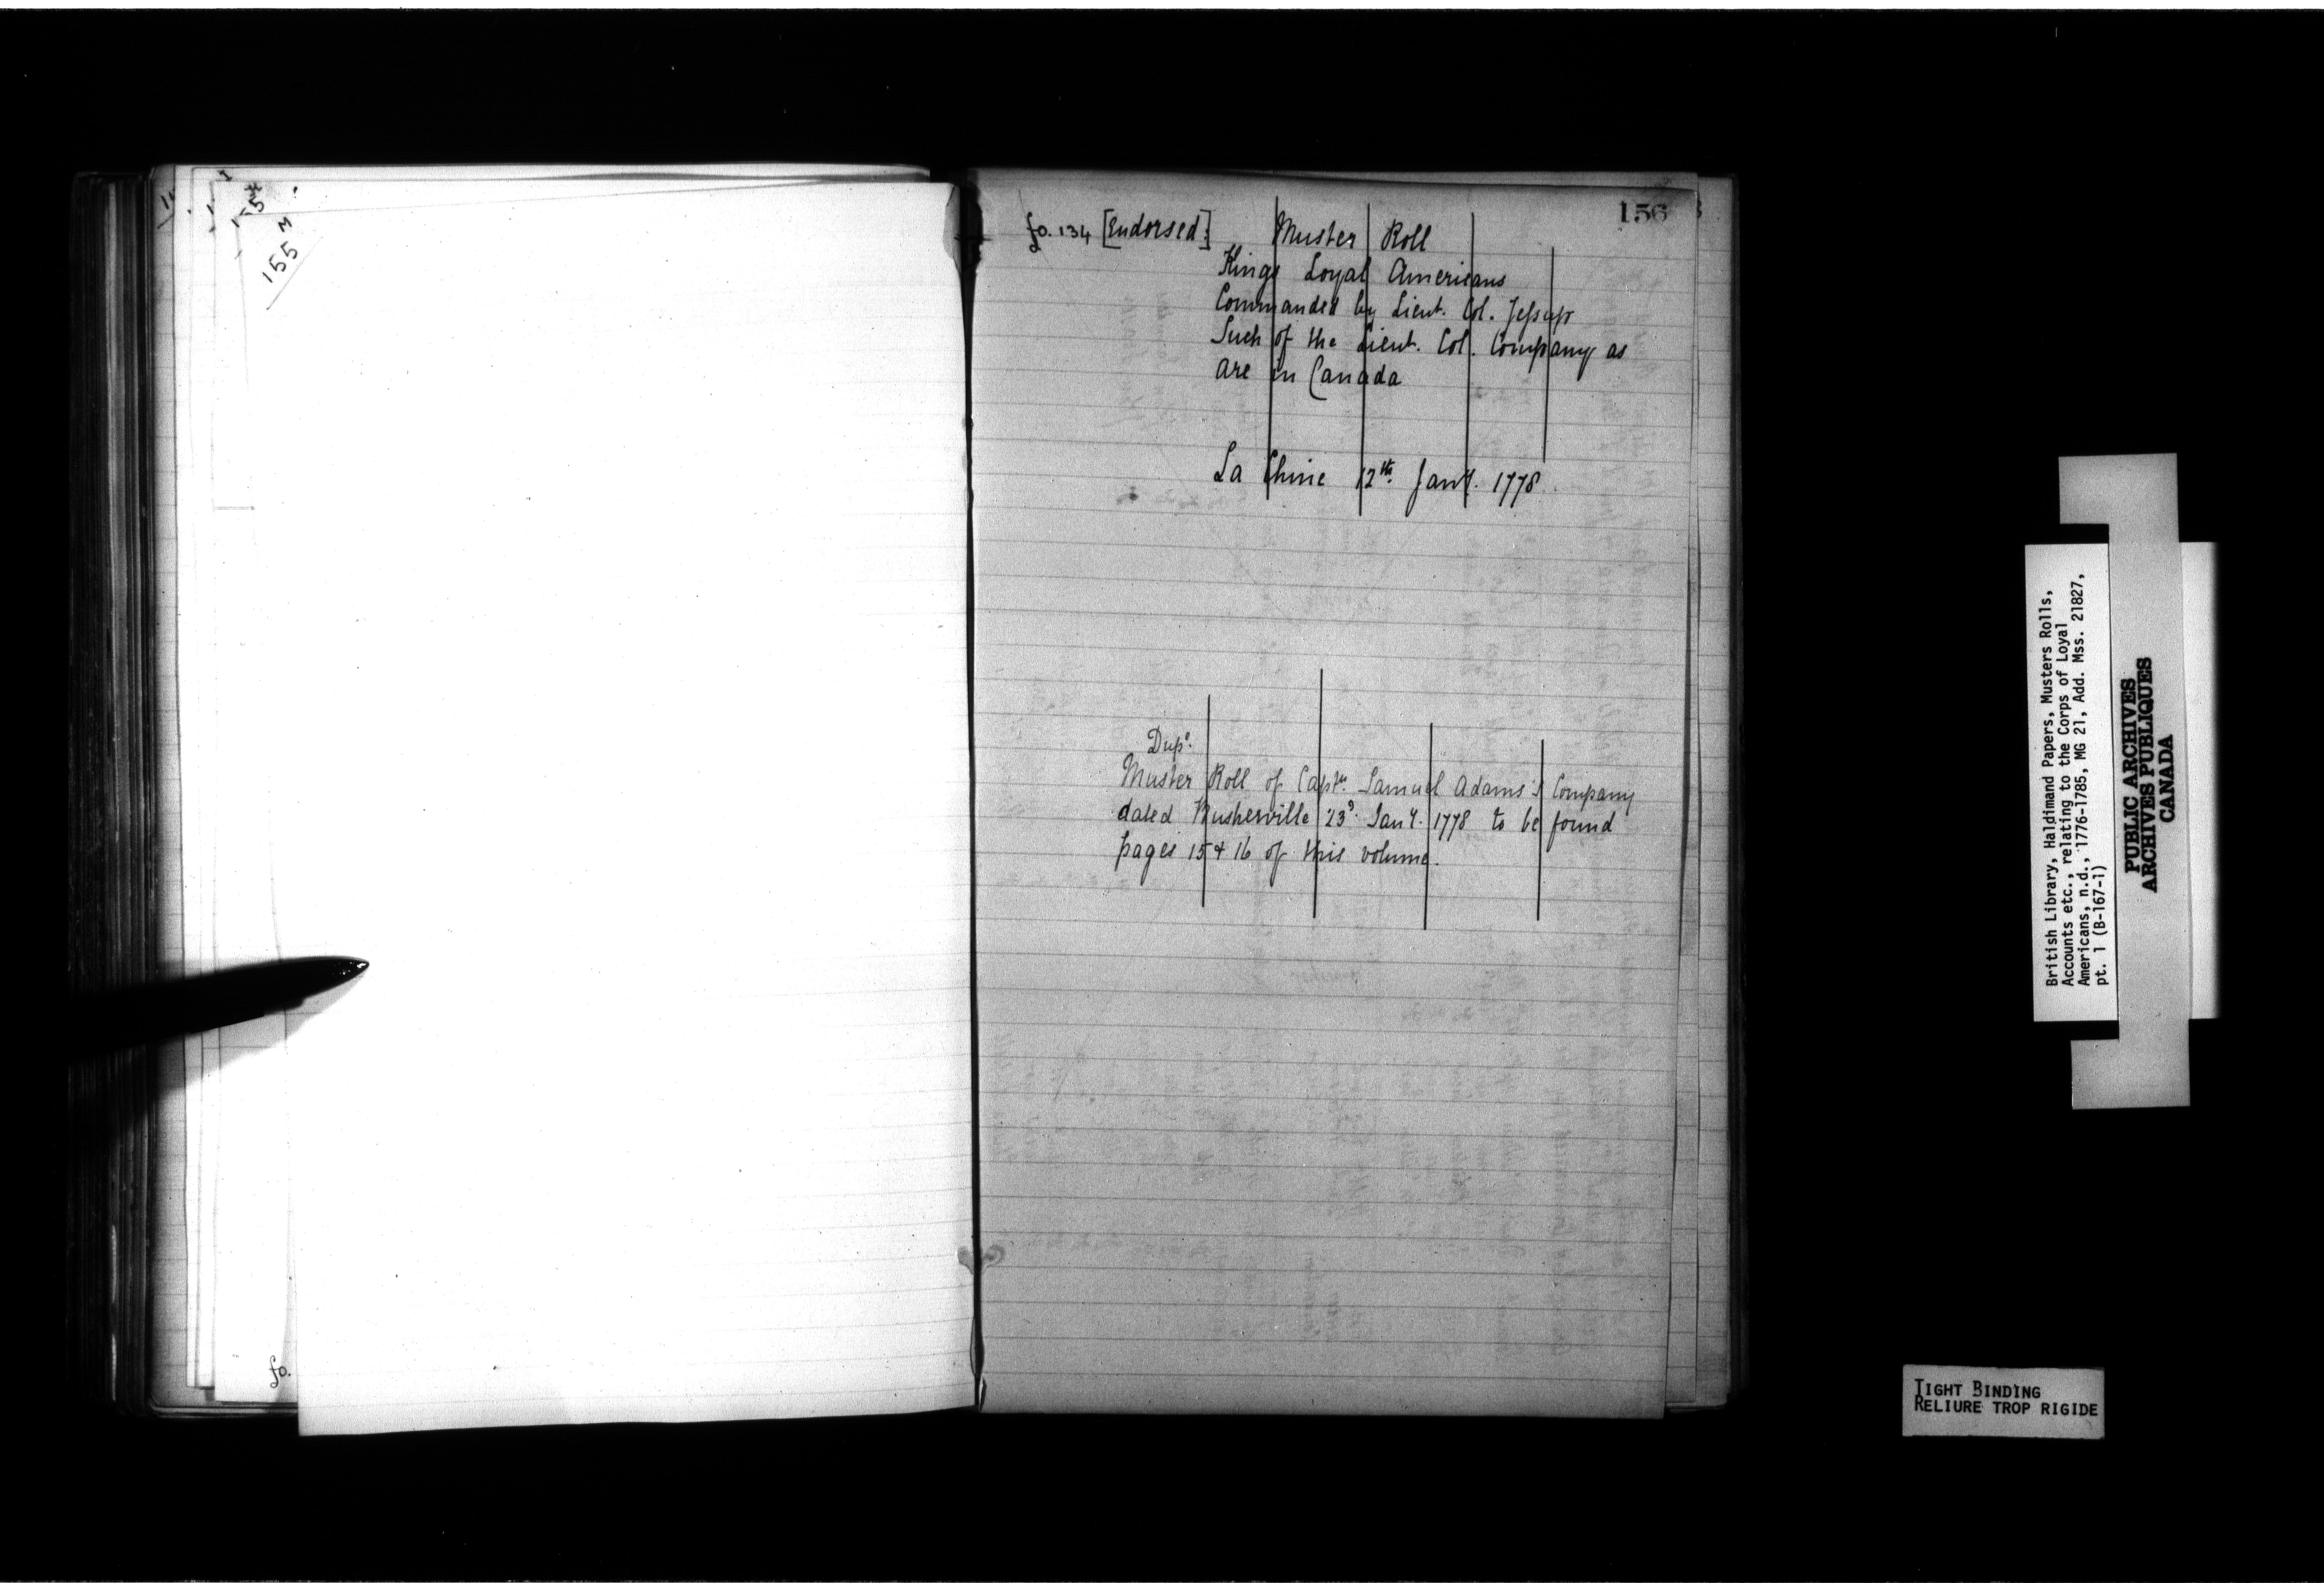 155
155
fo.
156
fo. 134 [Endorsed.] Muster Roll
Kings Loyal Americans
Commanded by Lieut. Col. Jessup
Such of the Lieut. Col. Company as
are in Canada
La Chine 12th. Jany. 1778.
Dupe.
Muster Roll of Captn. Samuel Adams's Company
dated 23d. Jany. 1778 to be found
pages 15 & 16 of this volume.
British Library, Haldimand Papers, Musters Rolls,
Accounts etc., relating to the Corps of Loyal
Americans, n.d., 1776-1785, MG 21, Add. Mss. 21827,
pt. 1 (B-167-1)
PUBLIC ARCHIVES
ARCHIVES PUBLIQUES
CANADA
TIGHT BINDING
RELIURE TROP RIGIDE